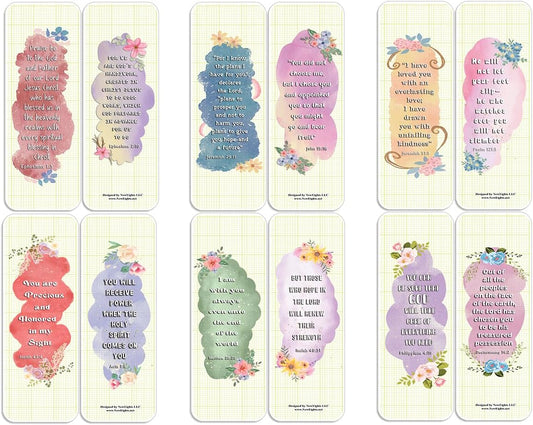 Praise be
to the God
and Father
of our Lord
Jesus Christ,
who has
blessed us in
the heavenly
realms with
every spiritual
blessing in
Christ
Ephesians 1:3
FOR WE
ARE GOD'S
HANDIWORK,
CREATED IN
CHRIST JESUS
TO DO GOOD
WORKS, WHICH
GOD PREPARED
IN ADVANCE
FOR US
TO DO
Ephesians 2:10
Designed by NewEights LLC
www.NewEights.net
"For I know
the plans I
have for you,"
declares
the Lord,
"plans to
prosper you
and not to
harm you,
plans to give
you hope and
a future"
Jeremiah 29:11
"You did not
choose me,
but I chose you
and appointed
you so that
you might
go and bear
fruit"
John 15:16
Designed by NewEights LLC
www.NewEights.net
"I have
loved you with
an everlasting
love;
I have
drawn you
with unfailing
kindness"
Jeremiah 31:3
He will
not let
your foot
slip—
he who
watches
over you
will not
slumber
Psalm 121:3
Designed by NewEights LLC
www.NewEights.net
You are
Precious
and
Honored
in my
Sight
Isaiah 43:4
YOU WILL
RECEIVE
POWER
WHEN THE
HOLY
SPIRIT
COMES ON
YOU
Acts 1:8
Designed by NewEights LLC
www.NewEights.net
I am
with you
always,
even unto
the end
of the
world
Matthew 28:20
BUT THOSE
WHO HOPE IN
THE LORD
WILL RENEW
THEIR
STRENGTH
Isaiah 40:31
Designed by NewEights LLC
www.NewEights.net
GOD
WILL TAKE
CARE OF
EVERYTHING
YOU NEED
Philippians 4:19
Out of
all the
peoples
on the face
of the earth,
the Lord has
chosen you
to be his
treasured
possession
Deuteronomy 14:2
Designed by NewEights LLC
www.NewEights.net